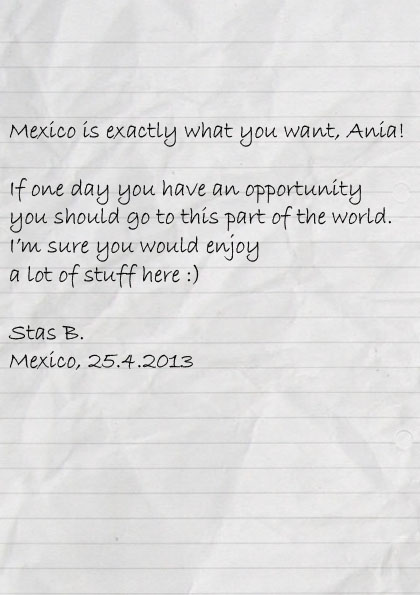 Mexico is exactly what you want, Ania!
If one day you have an opportunity
you should go to this part of the world.
I'm sure you would enjoy
a lot of stuff here :)
Stas B.
Mexico, 25.4.2013